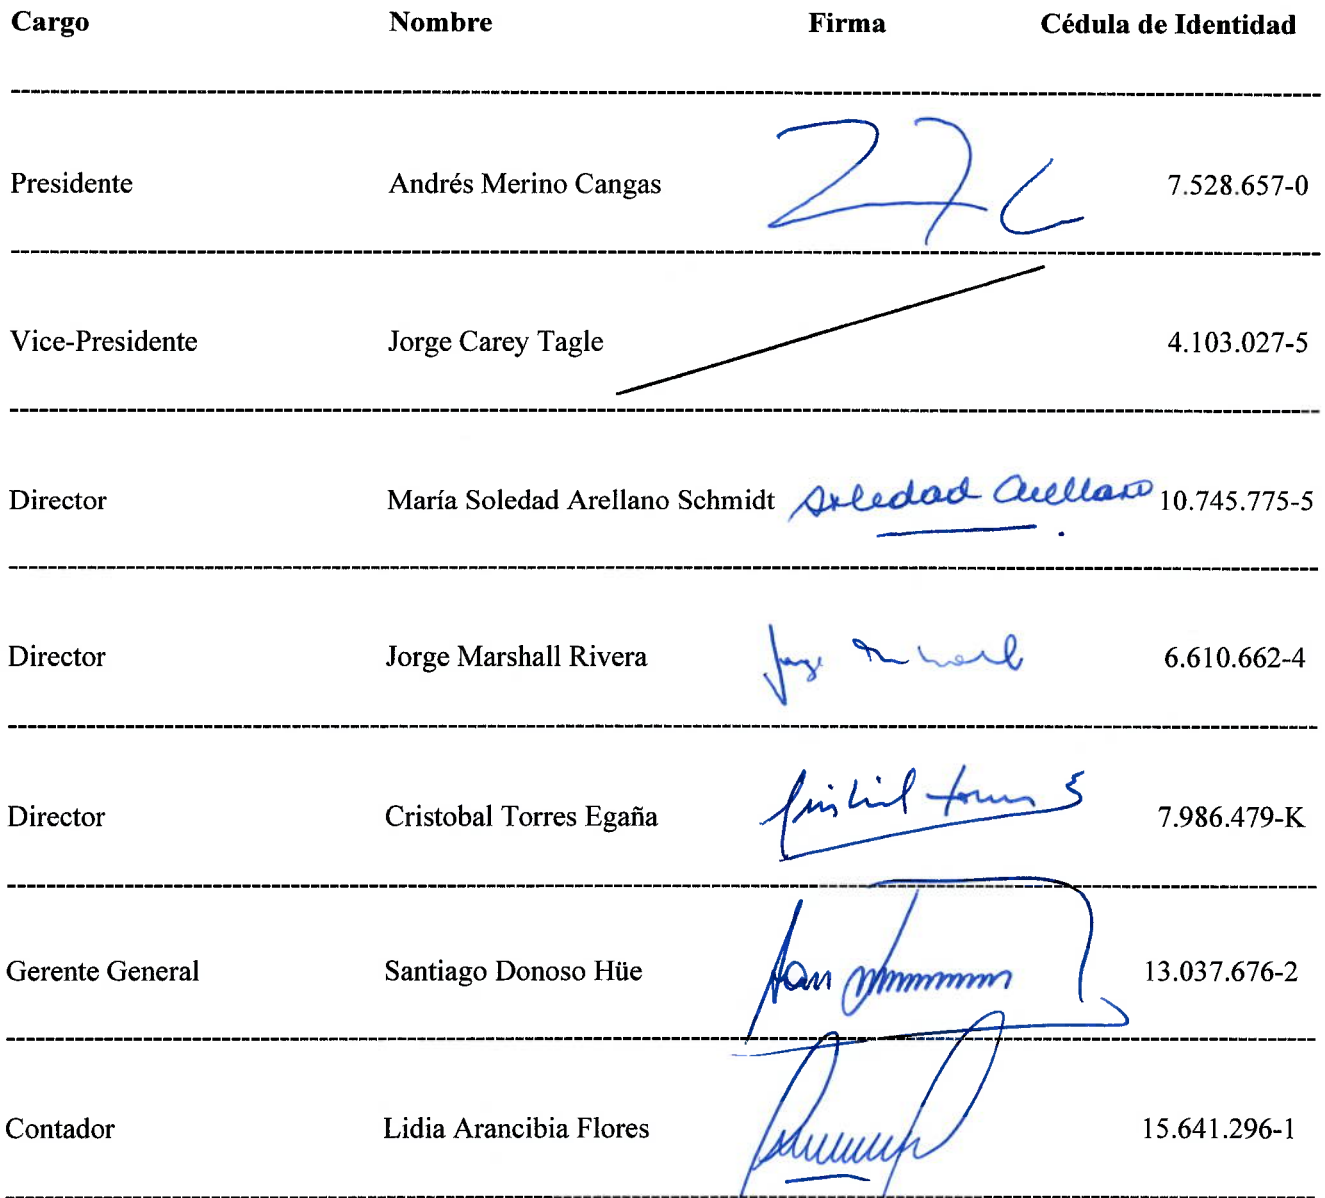 Cargo Nombre Firma Cédula de Identidad
Presidente Andrés Merino Cangas 7.528.657-0
Vice-Presidente Jorge Carey Tagle 4.103.027-5
Director María Soledad Arellano Schmidt Soledad Arellano 10.745.775-5
Director Jorge Marshall Rivera Jorge 6.610.662-4
Director Cristobal Torres Egaña 7.986.479-K
Gerente General Santiago Donoso Hüe 13.037.676-2
Contador Lidia Arancibia Flores 15.641.296-1